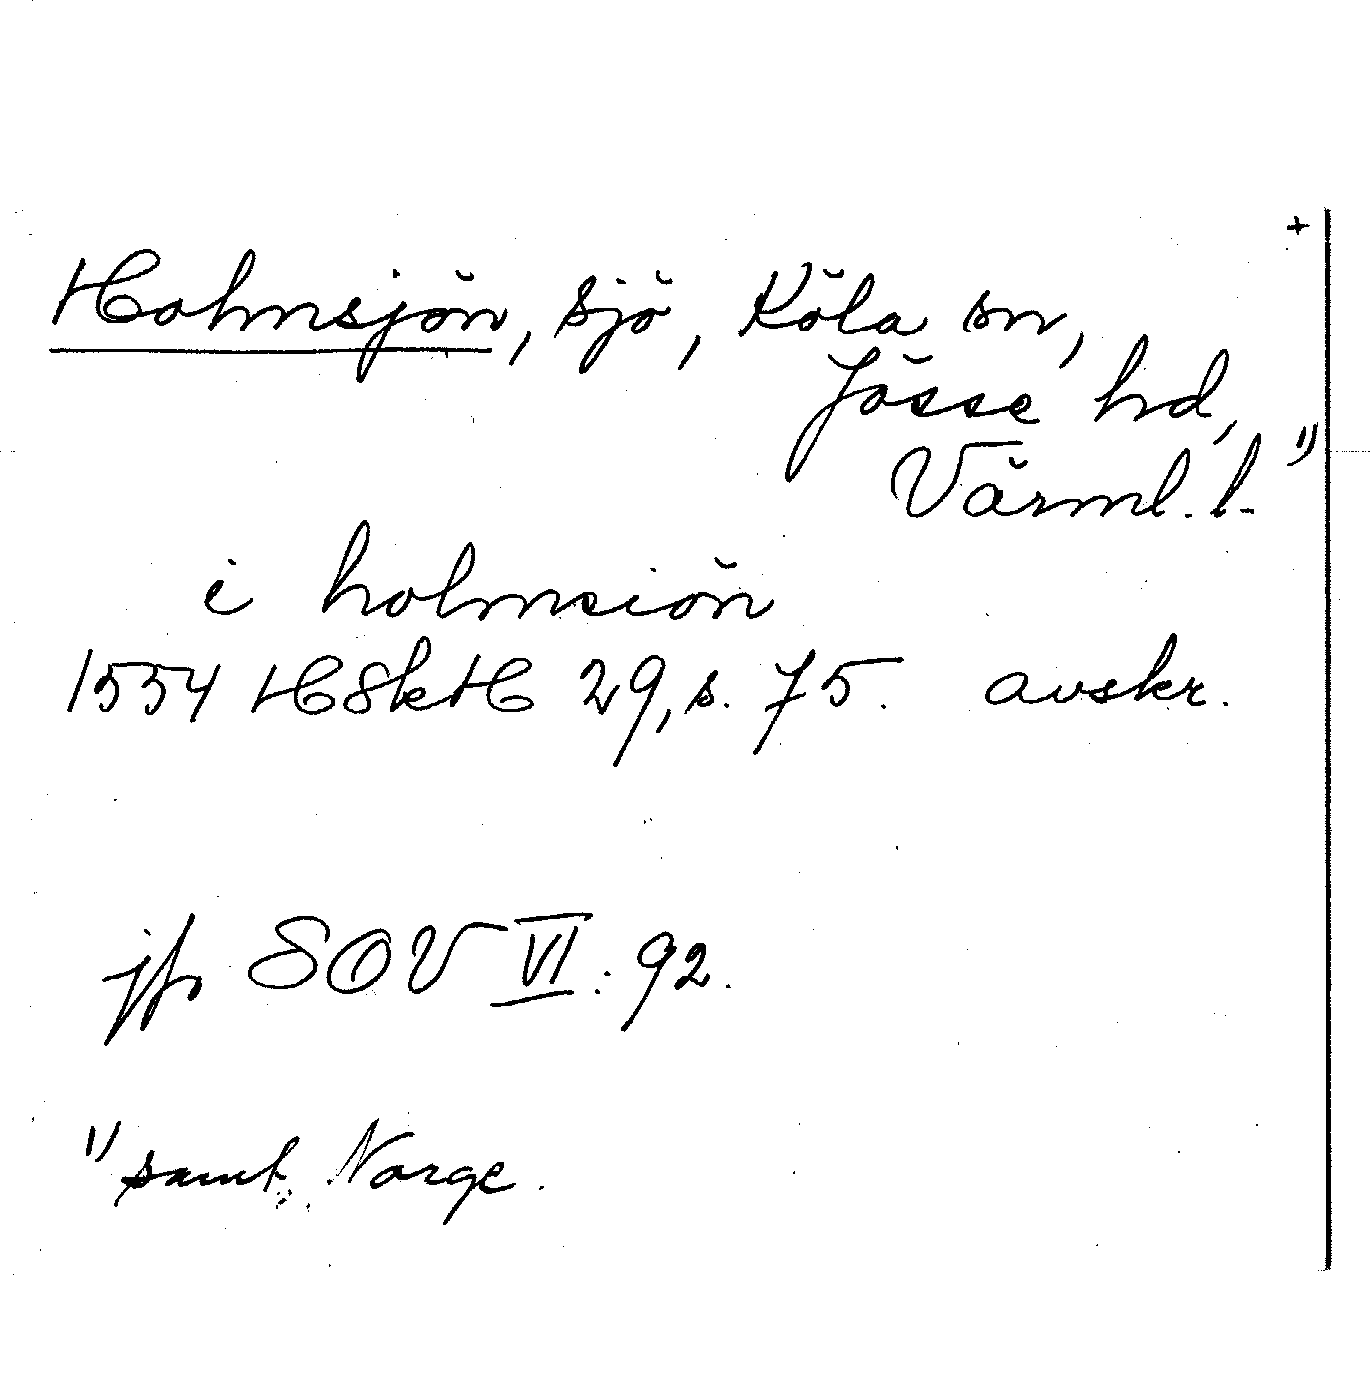 +
Holmsjön, sjö, Köla sn,
Jösse hd,
Värml. l. 1)
i holmsiön
1554 HSkH 29, s. 75. avskr.
jfr SOV VI: 92.
1) samt Norge.